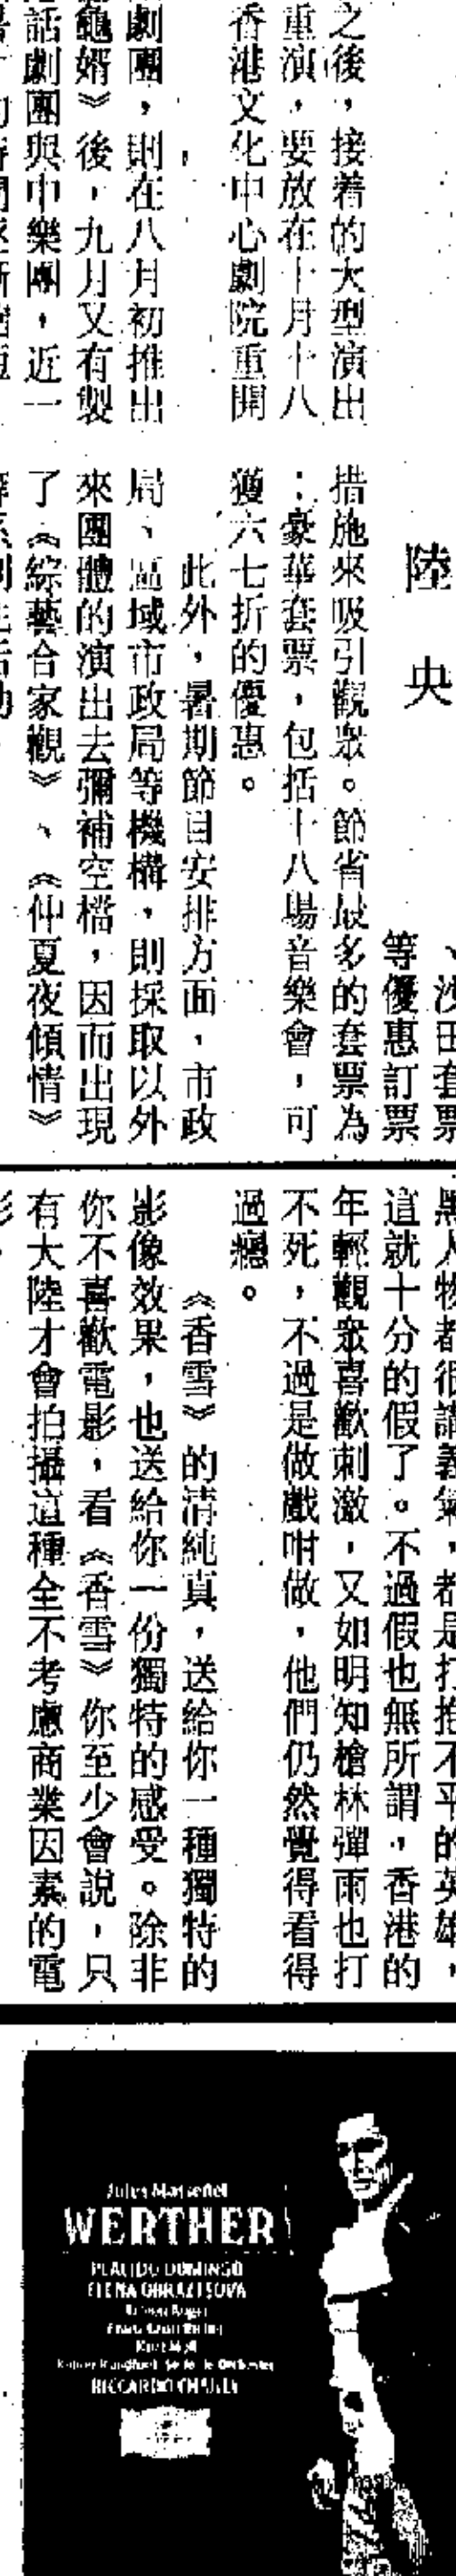 之後，接着的大型演出
重演，要放在十月十八
香港文化中心劇院重開
劇團，則在八月初推出
龜婿》後，九月又有製
話劇團與中樂團，近一
陸央
、沙田套票
等優惠訂票
措施來吸引觀眾。節省最多的套票為
：豪華套票，包括十八場音樂會，可
獲六七折的優惠。
此外，暑期節目安排方面，市政
局、區域市政局等機構，則採取以外
來團體的演出去彌補空檔，因而出現
了《綜藝合家觀》、《仲夏夜傾情》
黑人物都很講義氣，都是打抱不平的英雄，
這就十分的假了。不過假也無所謂，香港的
年輕觀眾喜歡刺激，又如明知槍林彈雨也打
不死，不過是做戲咁做，他們仍然覺得看得
過癮。
《香雪》的清純真，送給你一種獨特的
影像效果，也送給你一份獨特的感受。除非
你不喜歡電影，看《香雪》你至少會說，只
有大陸才會拍攝這種全不考慮商業因素的電
影。
Jules Massenet
WERTHER
PLACIDO DOMINGO
ELENA OBRAZTSOVA
Kurt Moll
RICCARDO CHAILLY